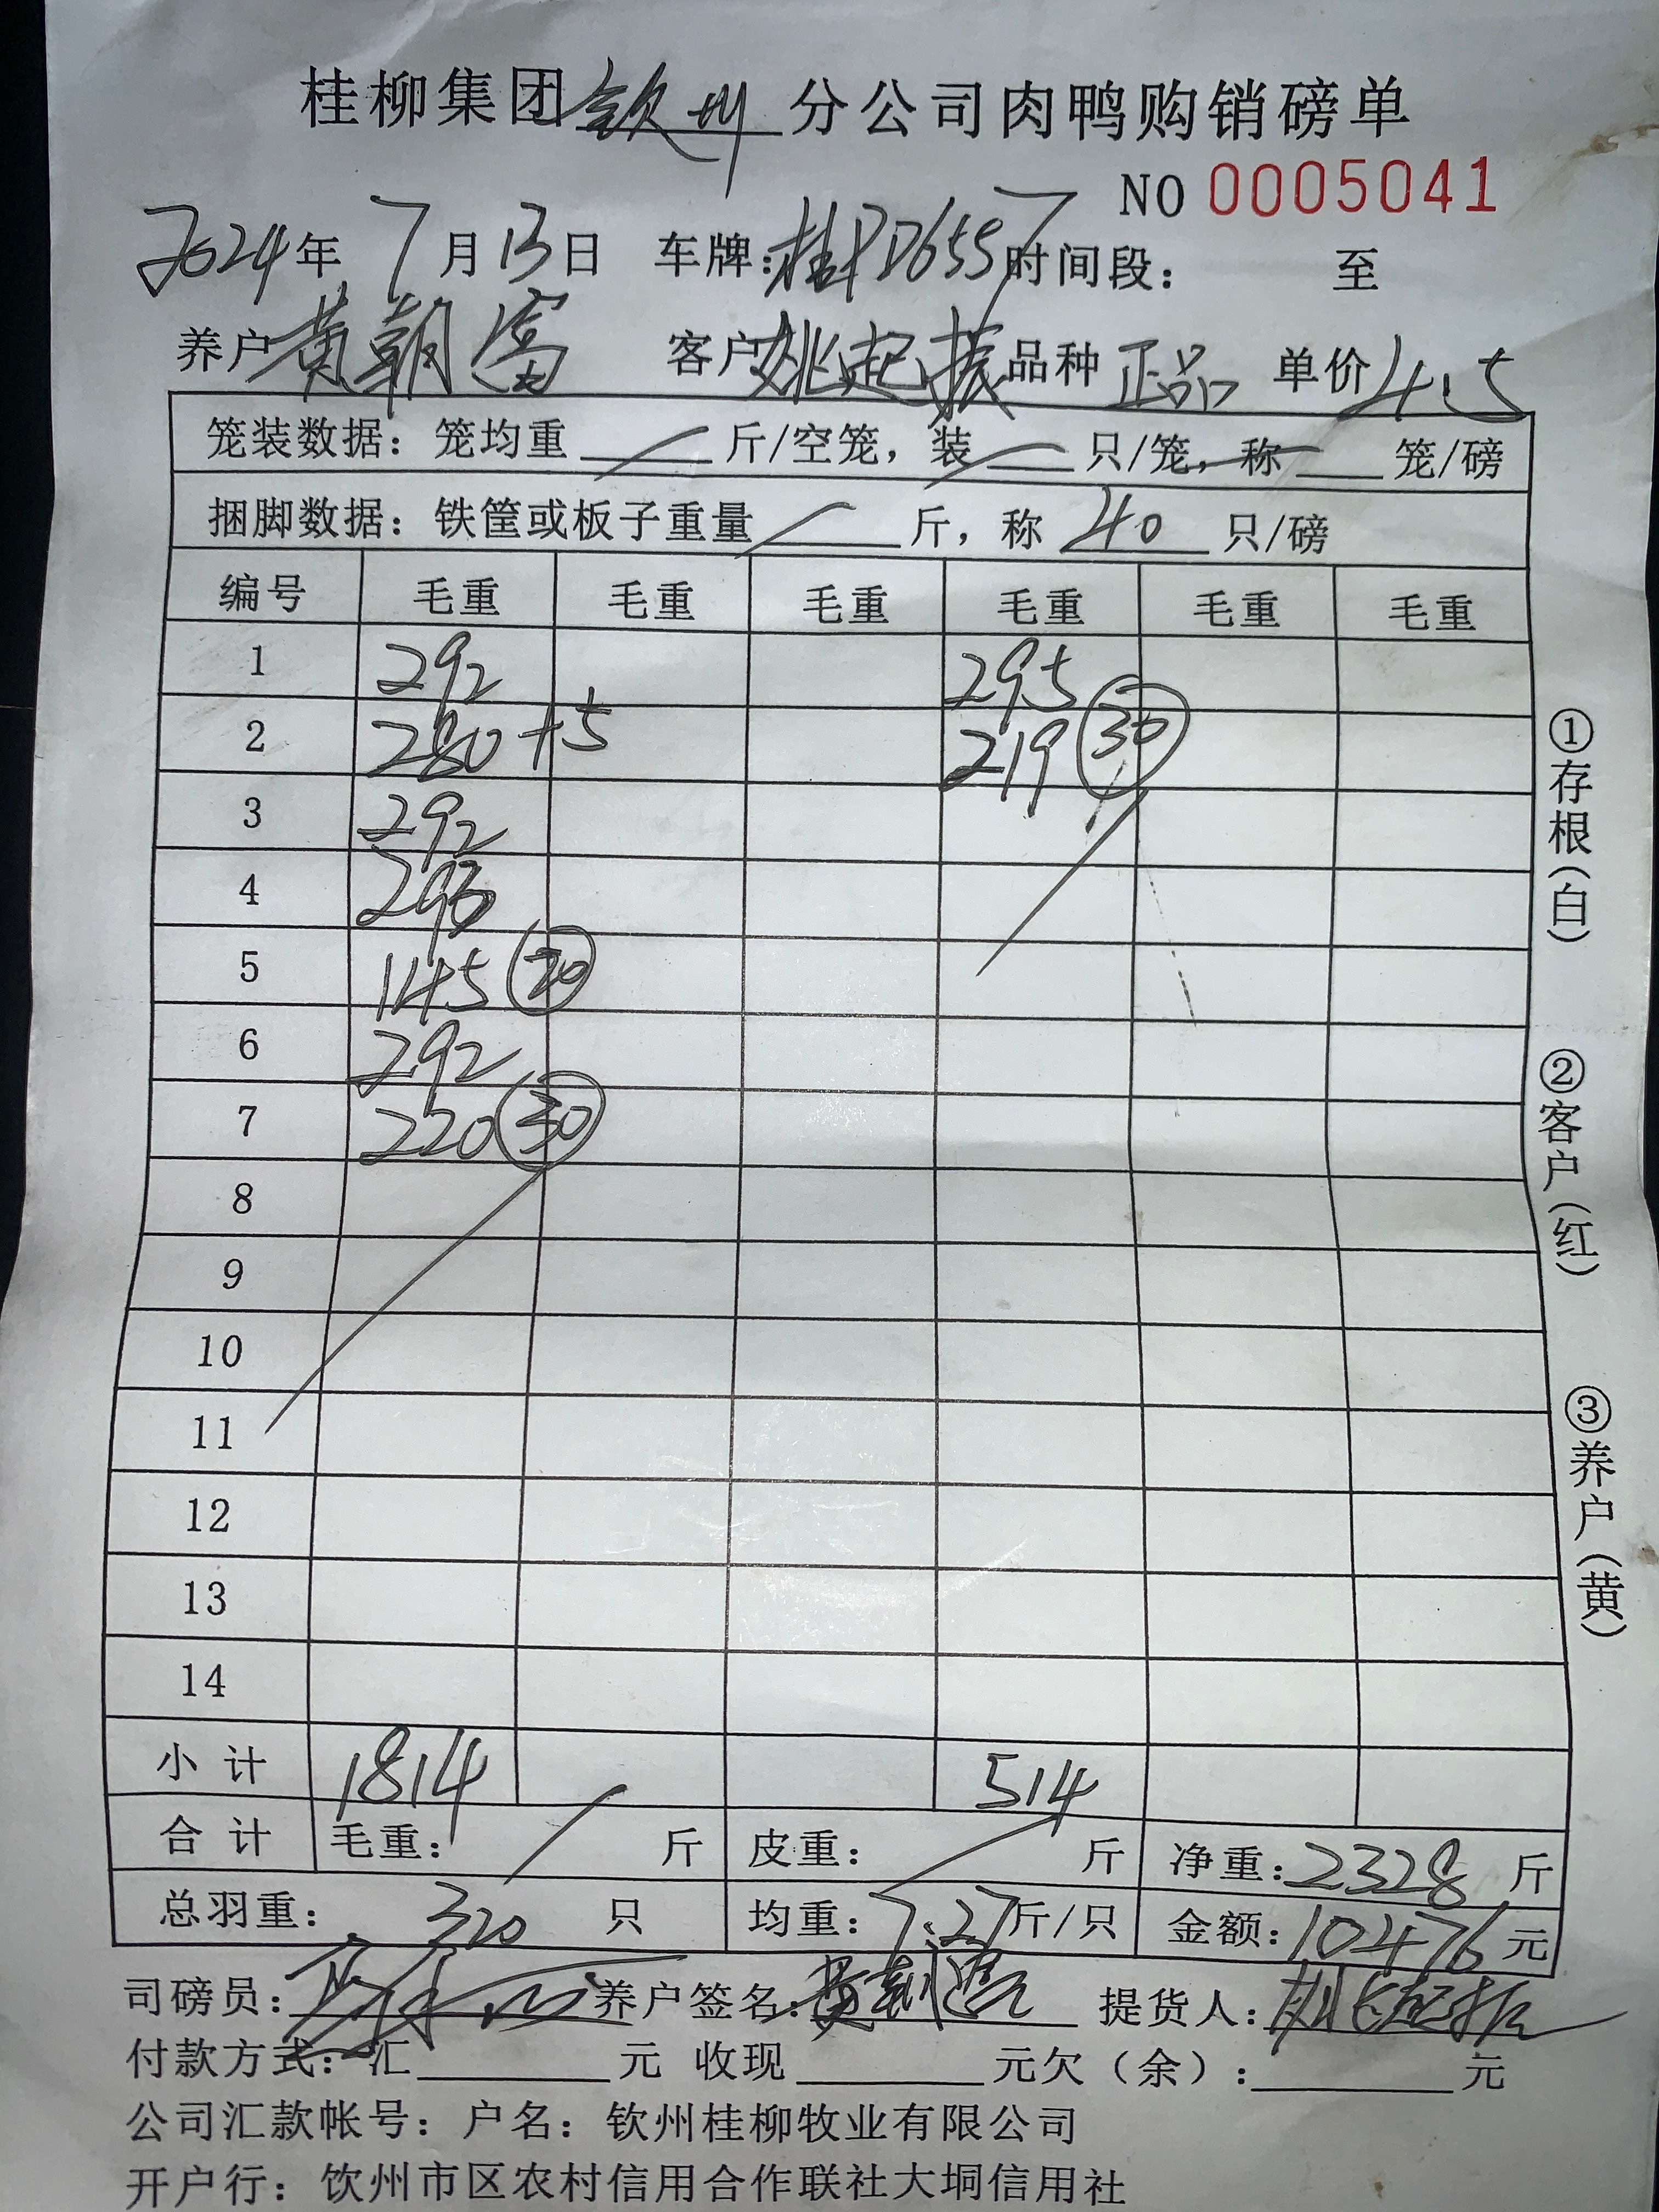 桂柳集团钦州分公司肉鸭购销磅单
NO 0005041
2024年 7月13日 车牌:桂PD6557 时间段: 至
养户 黄朝富 客户 姚起振 品种 正品 单价 4.5
笼装数据: 笼均重 斤/空笼, 装 只/笼, 称 笼/磅
捆脚数据: 铁筐或板子重量 斤, 称 40 只/磅
编号 毛重 毛重 毛重 毛重 毛重 毛重
1 292 295
2 280+5 219 (30)
3 292
4 293
5 145 (20)
6 292
7 220 (30)
8
9
10
11
12
13
14
小计 1814 514
合计 毛重: 斤 皮重: 斤 净重: 2328 斤
总羽重: 320 只 均重: 7.27 斤/只 金额: 10476 元
司磅员: 养户签名: 黄朝富 提货人: 姚起振
付款方式: 汇 元 收现 元欠(余): 元
公司汇款帐号: 户名: 钦州桂柳牧业有限公司
开户行: 钦州市区农村信用合作联社大垌信用社
①存根(白)
②客户(红)
③养户(黄)